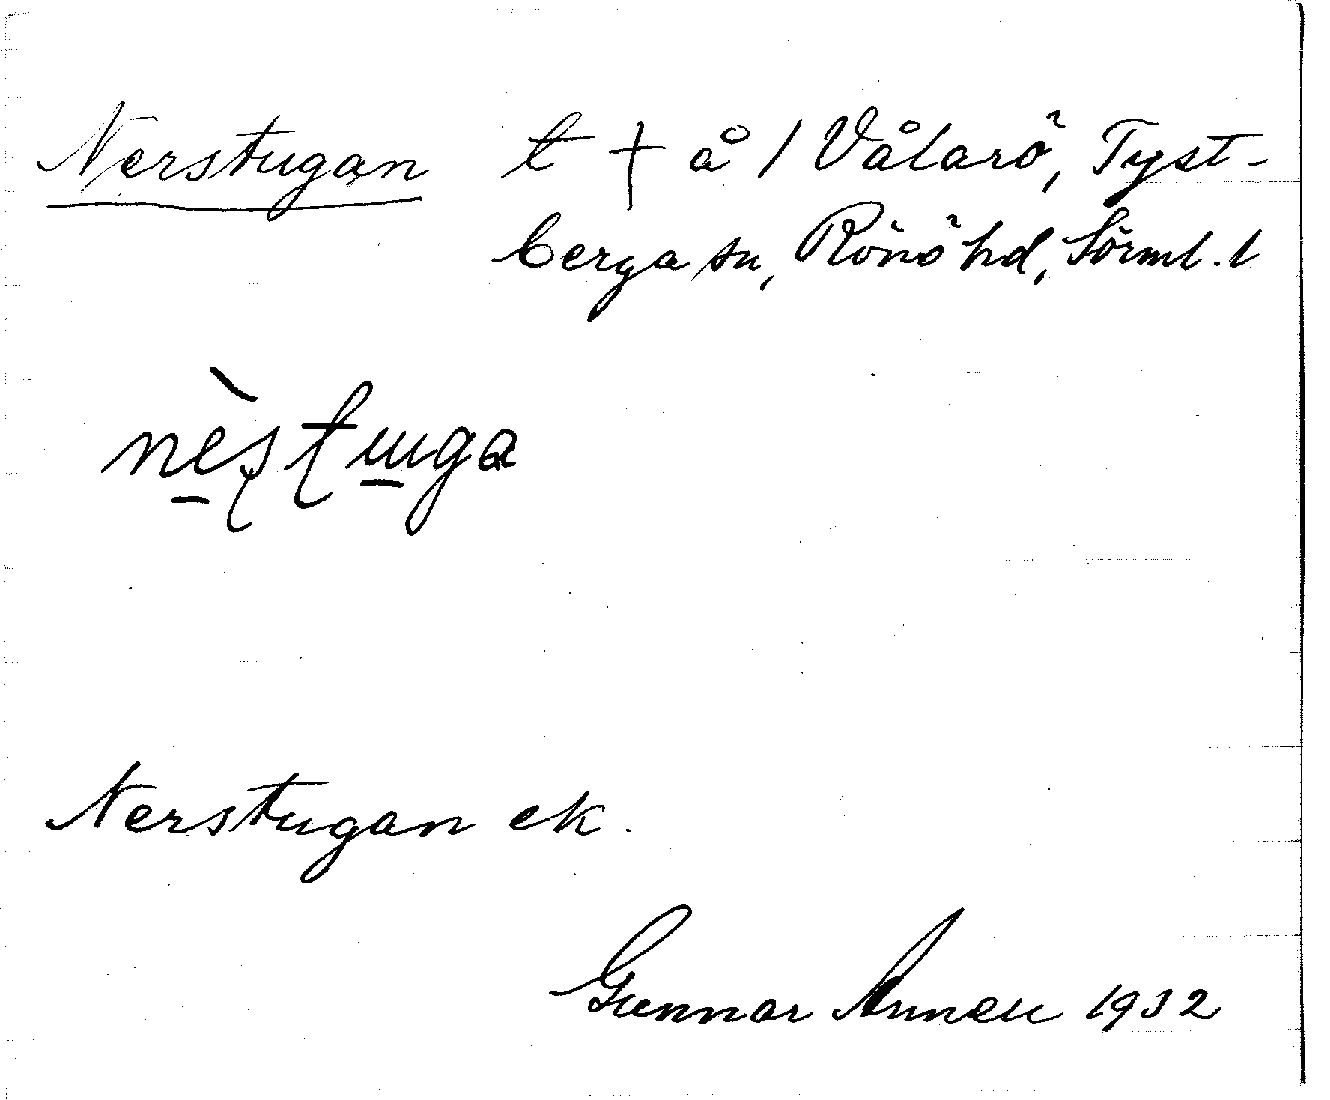 Nerstugan t † å / Vålarö, Tyst-
berga sn, Rönö hd, Sörml. l
nèstuga
Nerstugan ek.
Gunnar Annell 1932